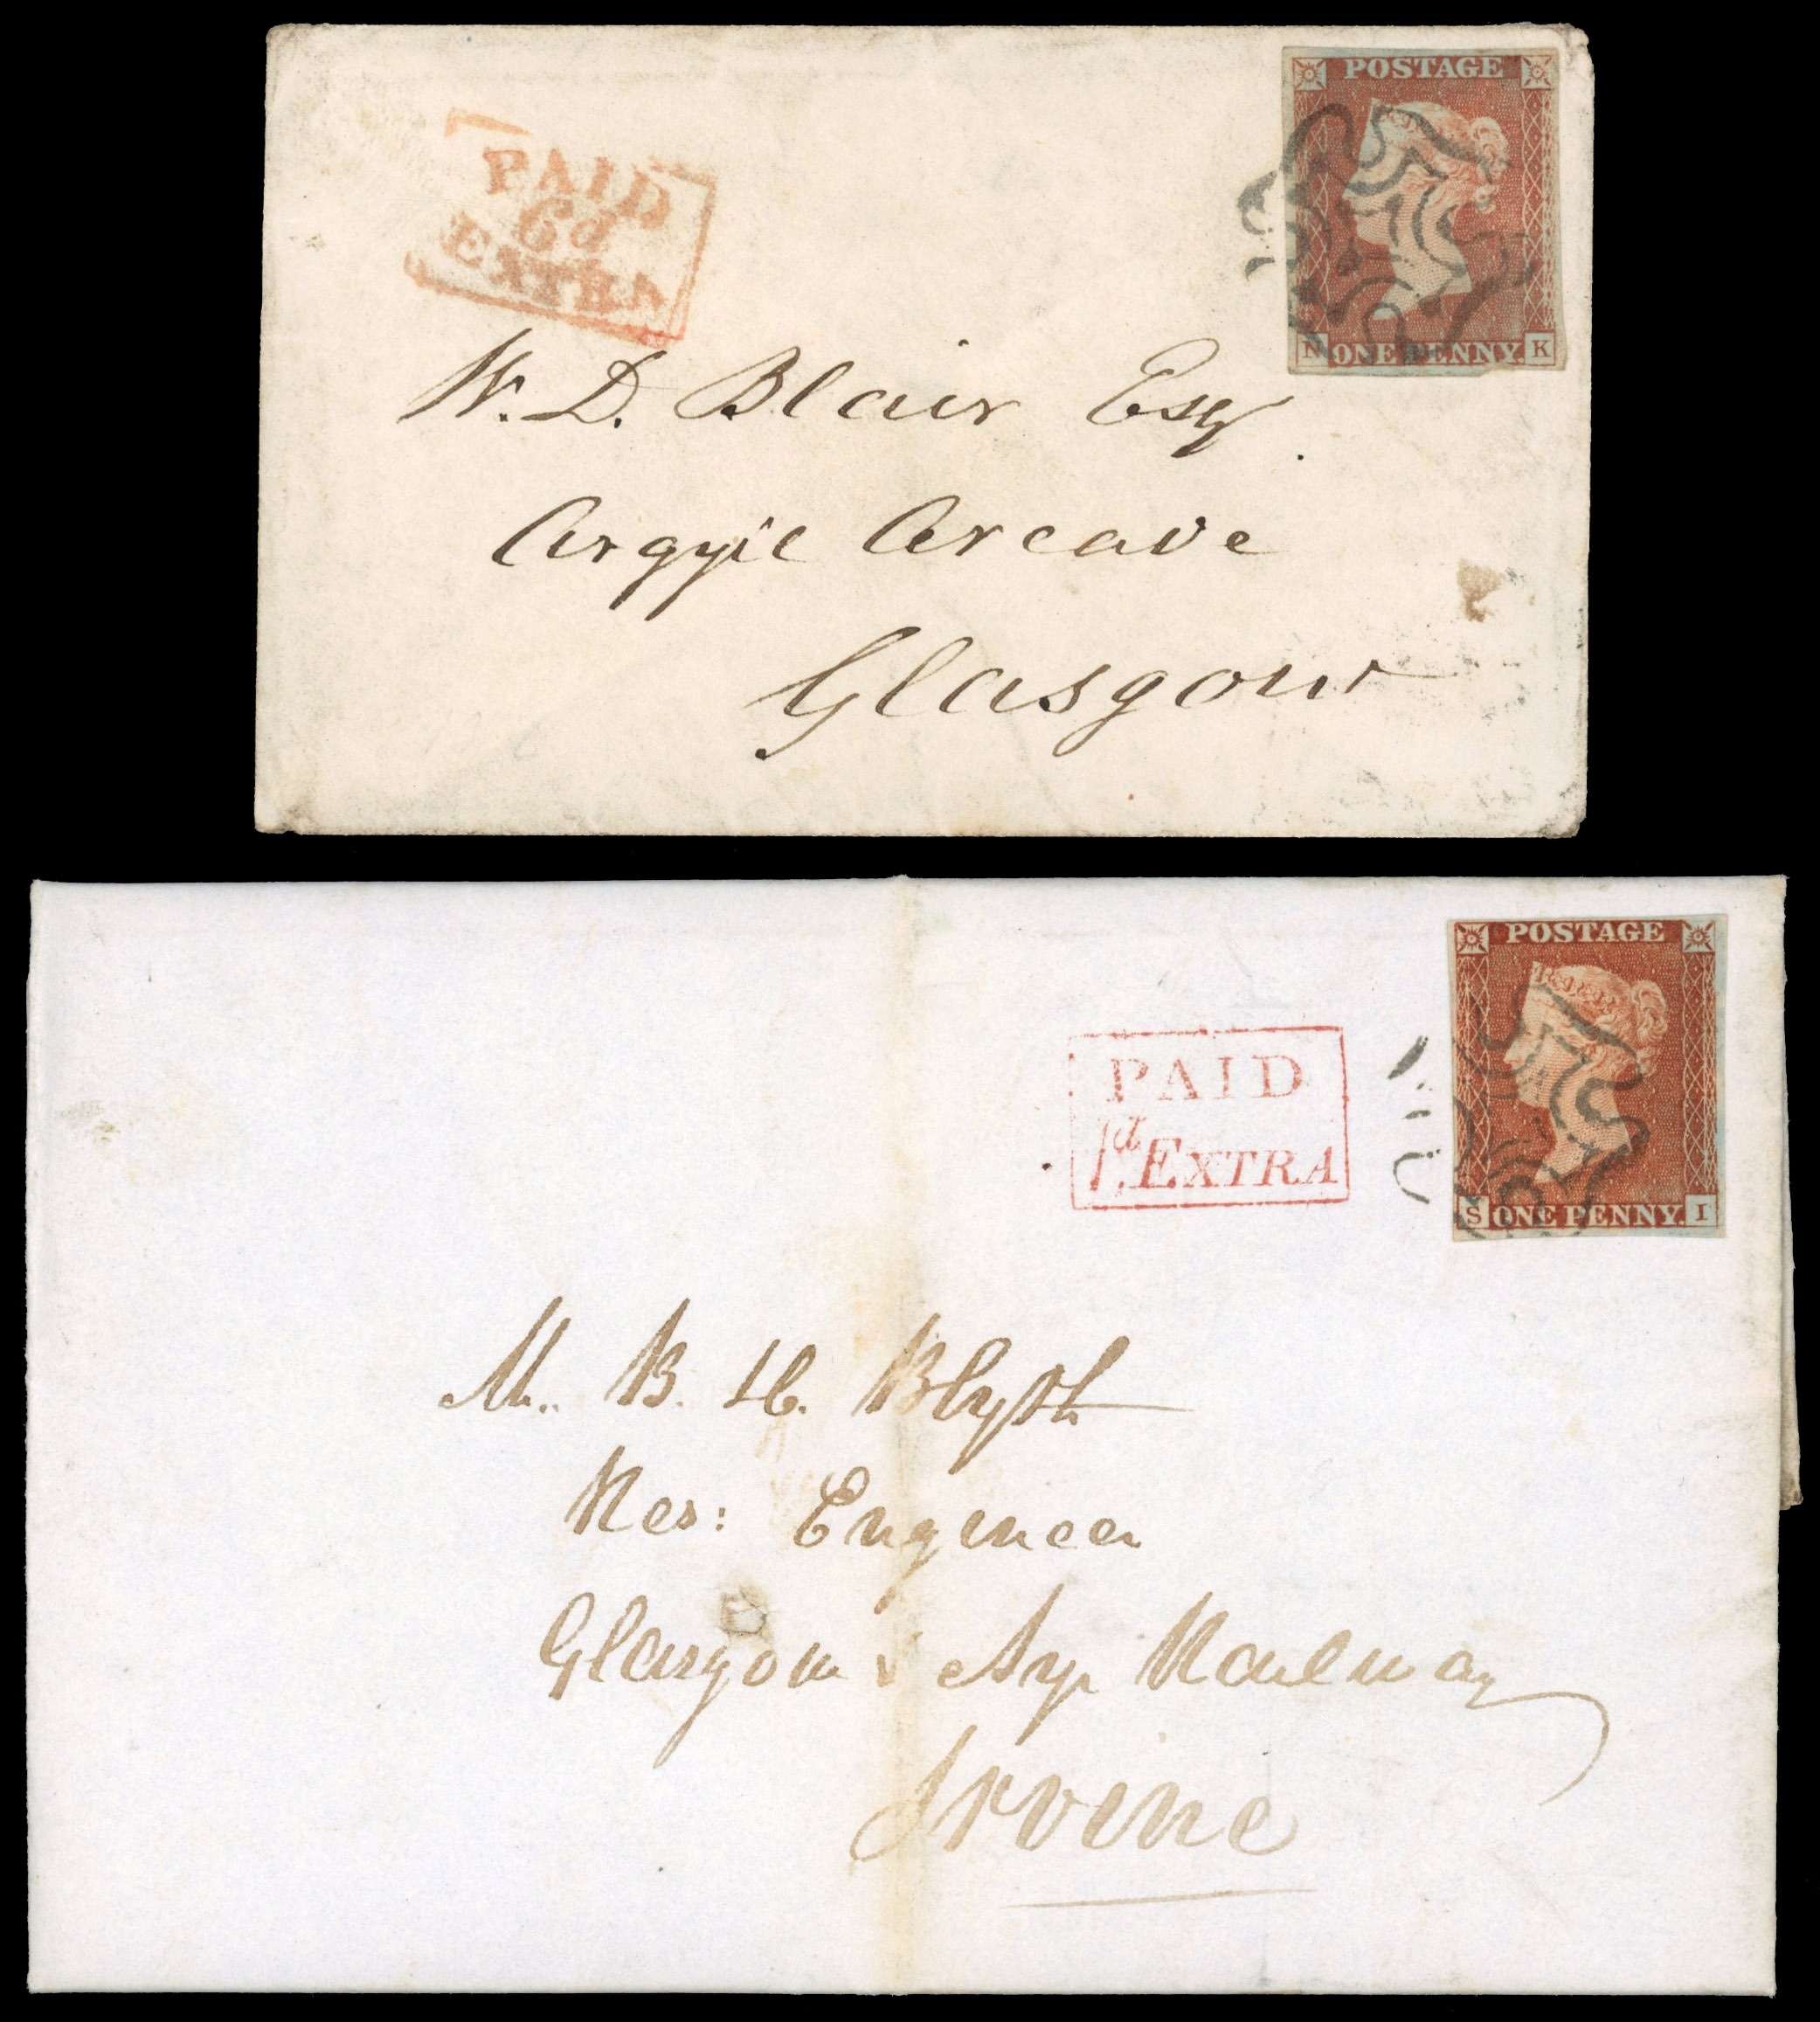 POSTAGE
PAID
6d
EXTRA
N ONE PENNY. K
W. D. Blair Esq
Argyle Arcade
Glasgow
POSTAGE
PAID
1d. EXTRA
S ONE PENNY. I
Mr. B. H. Blyth
Res: Engineer
Glasgow & Ayr Railway
Irvine